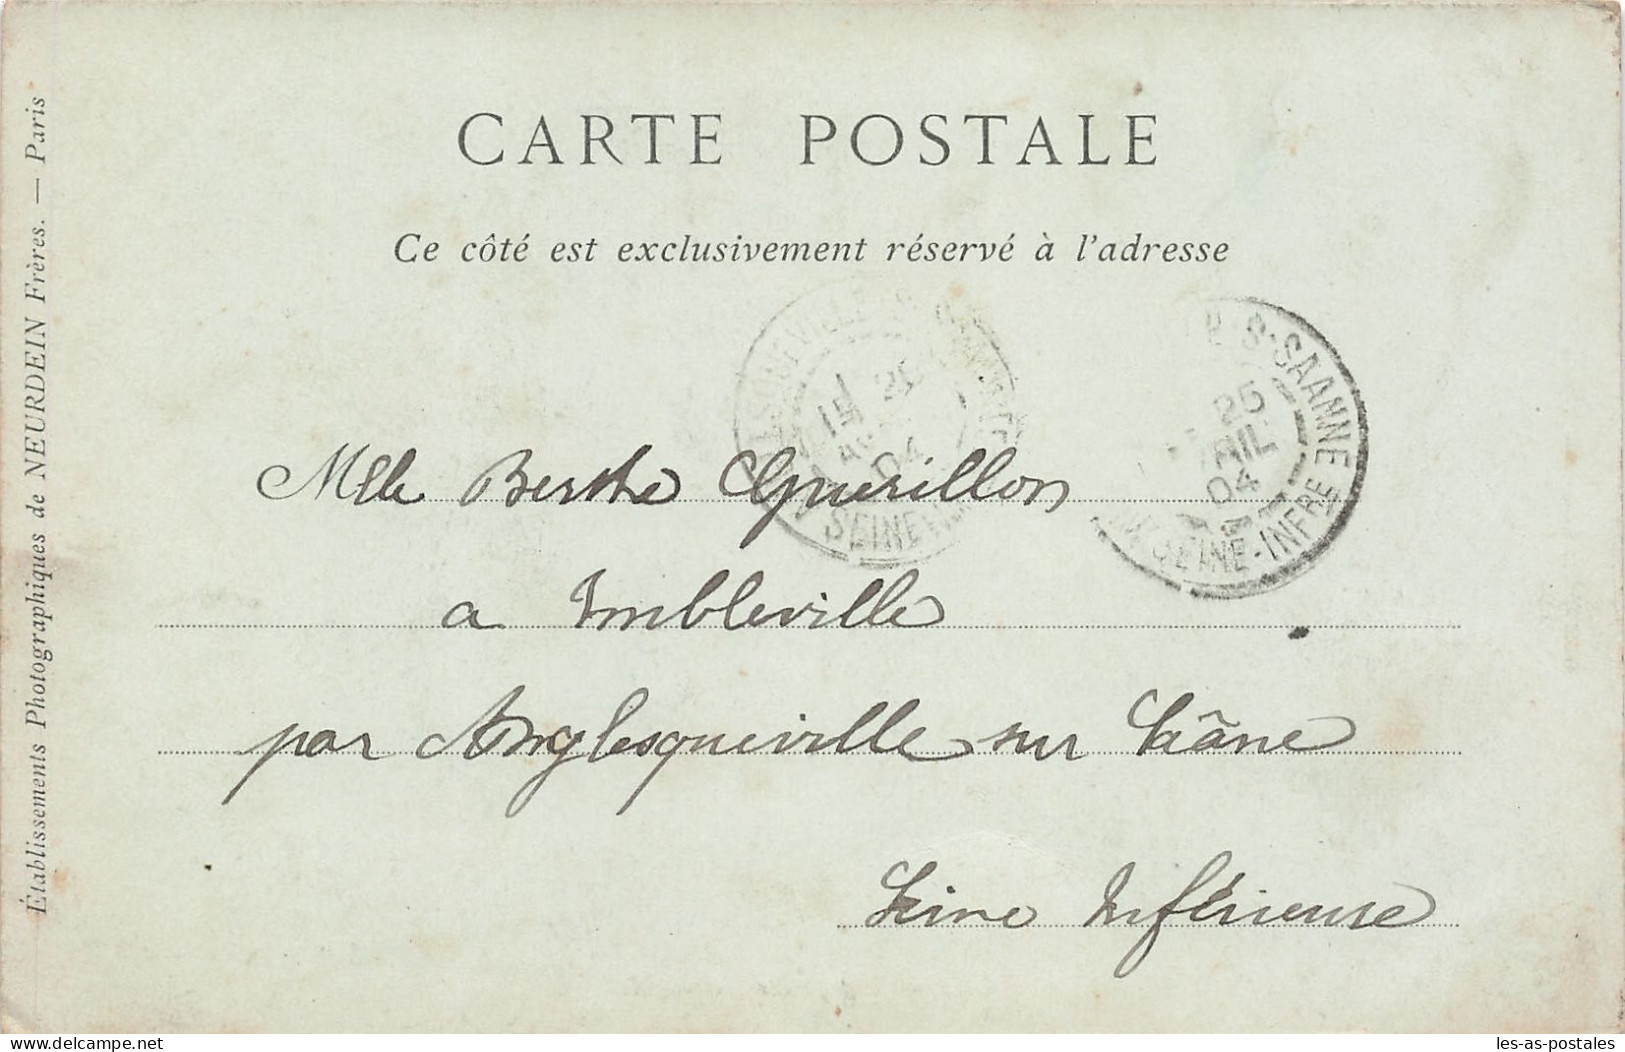 CARTE POSTALE
Ce côté est exclusivement réservé à l'adresse
Établissements Photographiques de NEURDEIN Frères. — Paris
S-SAANNE
25
AVRIL
04
SEINE-INFRE
25
04
SEINE
Mlle Berthe Guérillon
a Imbleville
par Anglesqueville sur Sâane
Seine Inférieure
delcampe.net
les-as-postales